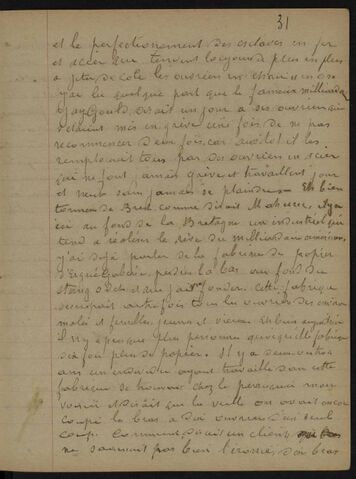 31
et le perfectionnement des esclaves en fer
et acier leur tournent toujours de plus en plus
à jeter de côté les ouvriers en chair et en os
j'ai lu quelque part que le fameux milliardaire
Jay Gould, disait un jour à ses ouvriers qui
s'étaient mis en grève une fois de ne pas
recommencer deux fois, car aussitôt il les
remplacerait tous par des ouvriers en acier
qui ne font jamais grève et travaillent jour
et nuit sans jamais se plaindre. Eh bien
de Brest comme disait Mahurec, il y a
ici au fond de la Bretagne un industriel qui
tend à réaliser le rêve du milliardaire américain.
j'ai déjà parler de la fabrique de papier
d'Ergué Gabéric, perdue là bas au fond du
stang odet
occupait autrefois tous les ouvriers des environs
mâles et femelles, jeunes et vieux.
il n'y a presque plus personne quoique elle fabrique
dix fou plus de papier. Il y a
ans un individu ayant travaillé dans cette
fabrique se trouvait chez le perruquier
et disait que la veille on avait encore
coupé les bras à dix ouvriers d'un seul
coup. Comment disait un client,
ne sachant pas bien des bras